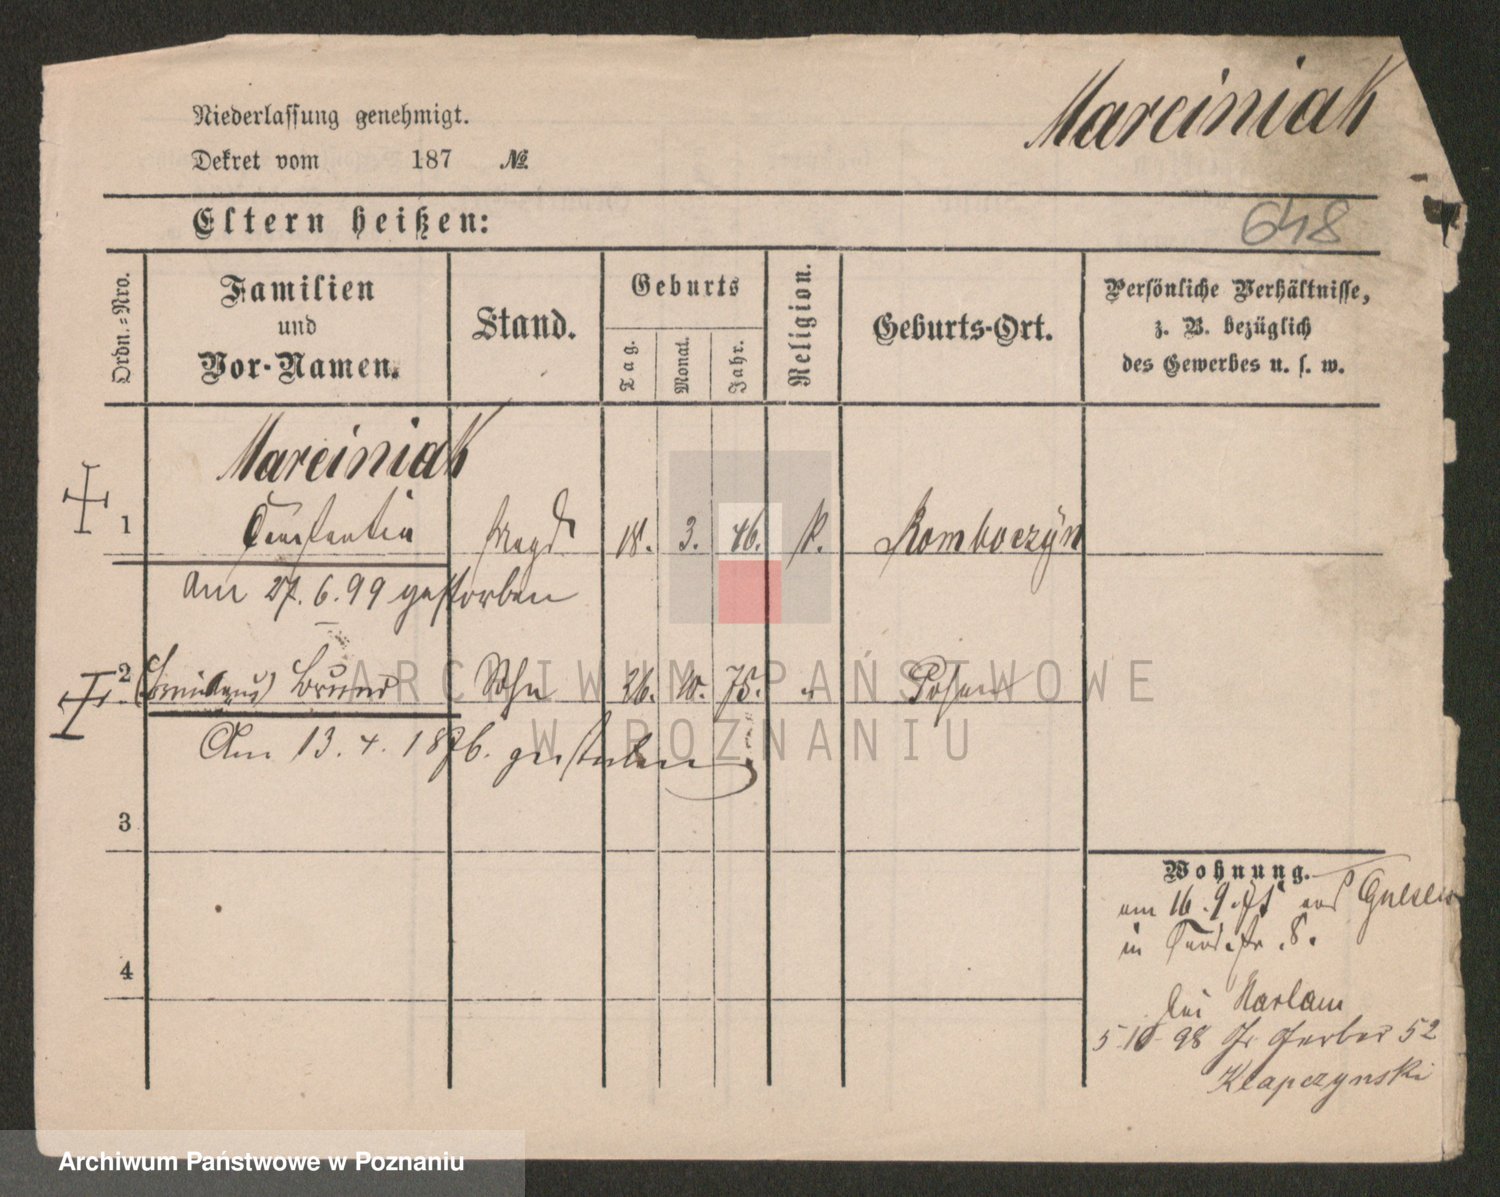 Marciniak
Niederlassung genehmigt.
Dekret vom 187 №
Eltern heißen:
648
Ordn.-Nro.
Familien
und
Vor-Namen.
Stand.
Geburts
Tag.
Monat.
Jahr.
Religion.
Geburts-Ort.
Persönliche Verhältnisse,
z. B. bezüglich
des Gewerbes u. s. w.
Marciniak
1 Constantia Magd 18. 3. 46. K. Komboczÿn
am 27. 6. 99 gestorben
2 Bruno Sohn 26. 10. 75. " Posen
Am 13. 4. 1876. gestorben
3
4
Wohnung.
am 16. 9. aus Gnesen
in 8.
bei Narlam
5 10 98 Gr Gerber 52
Klapczynski
ARCHIWUM PAŃSTWOWE
W POZNANIU
Archiwum Państwowe w Poznaniu